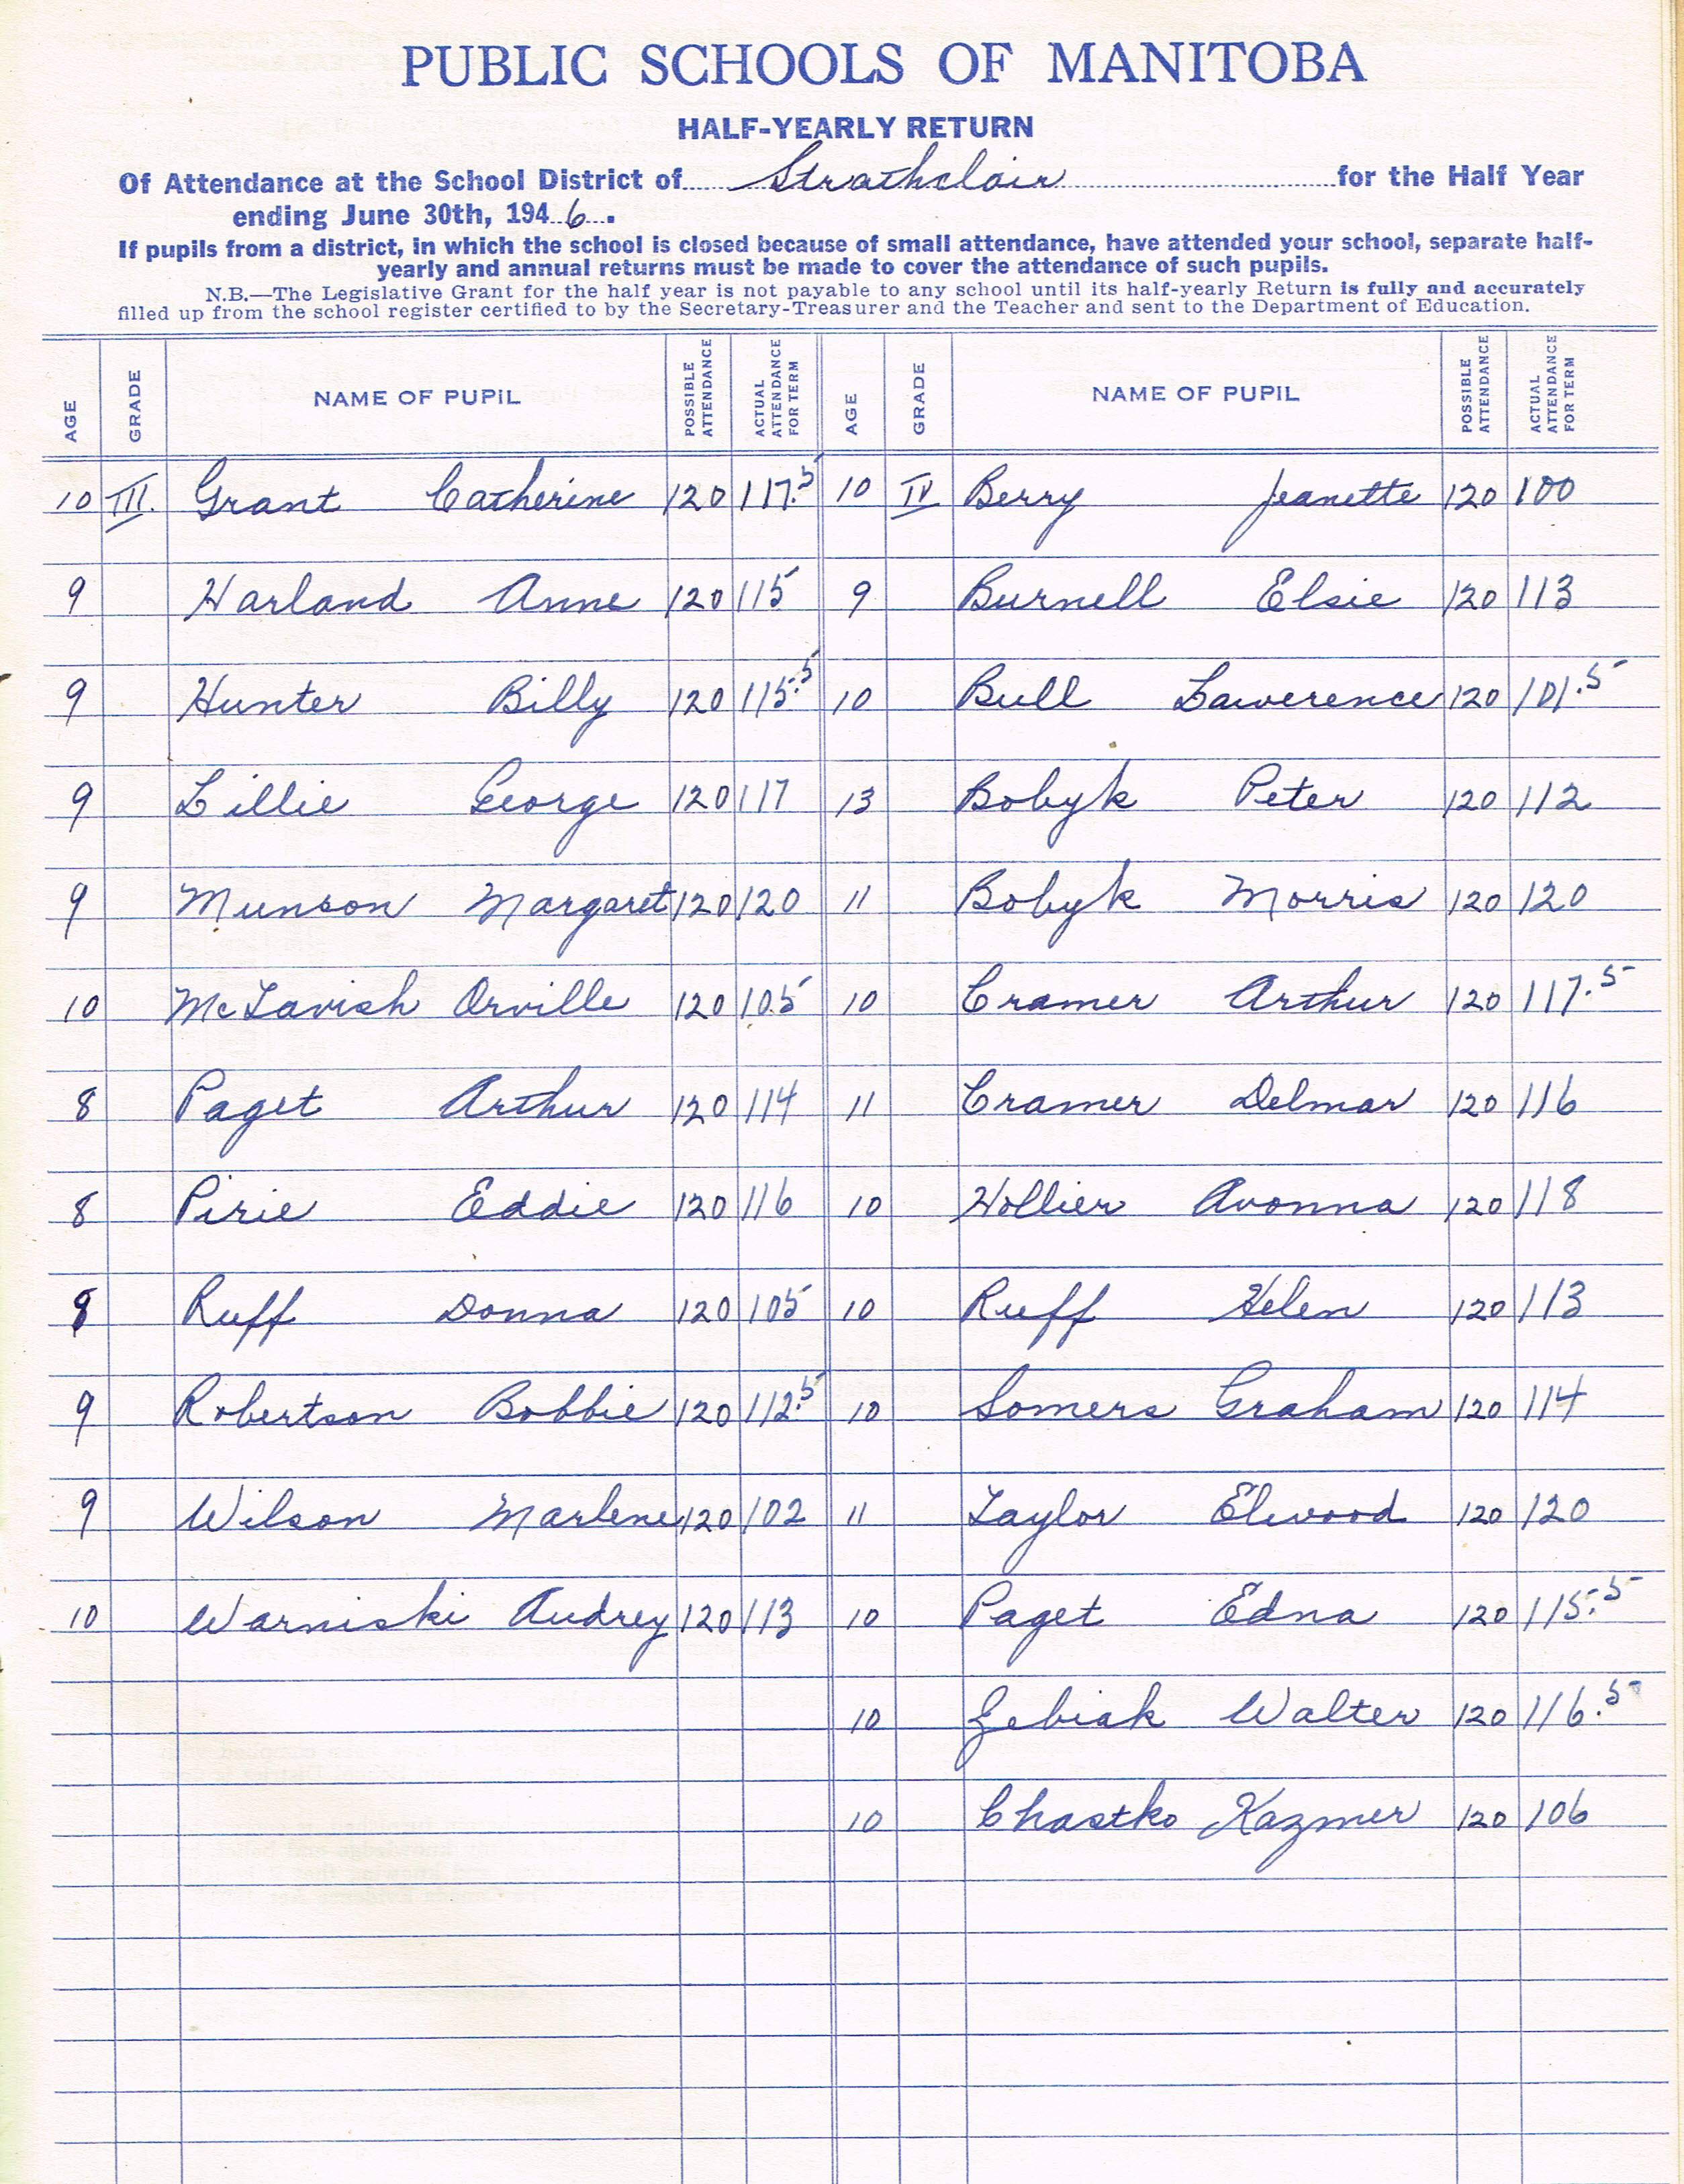 PUBLIC SCHOOLS OF MANITOBA
HALF-YEARLY RETURN
Of Attendance at the School District of Strathclair for the Half Year
ending June 30th, 1946.
If pupils from a district, in which the school is closed because of small attendance, have attended your school, separate half-
yearly and annual returns must be made to cover the attendance of such pupils.
N.B.—The Legislative Grant for the half year is not payable to any school until its half-yearly Return is fully and accurately
filled up from the school register certified to by the Secretary-Treasurer and the Teacher and sent to the Department of Education.
AGE GRADE NAME OF PUPIL POSSIBLE ATTENDANCE ACTUAL ATTENDANCE FOR TERM AGE GRADE NAME OF PUPIL POSSIBLE ATTENDANCE ACTUAL ATTENDANCE FOR TERM
10 III. Grant Catherine 120 117.5 10 IV Berry Jeanette 120 100
9 Harland Anne 120 115 9 Burnell Elsie 120 113
9 Hunter Billy 120 115.5 10 Bull Lawerence 120 101.5
9 Lillie George 120 117 13 Bobyk Peter 120 112
9 Munson Margaret 120 120 11 Bobyk Morris 120 120
10 McTavish Orville 120 105 10 Cramer Arthur 120 117.5
8 Paget Arthur 120 114 11 Cramer Delmar 120 116
8 Pirie Eddie 120 116 10 Hollier Avonna 120 118
8 Ruff Donna 120 105 10 Ruff Helen 120 113
9 Robertson Bobbie 120 112.5 10 Somers Graham 120 114
9 Wilson Marlene 120 102 11 Taylor Elwood 120 120
10 Warniski Audrey 120 113 10 Paget Edna 120 115.5
10 Zebiak Walter 120 116.5
10 Chastko Kazmer 120 106